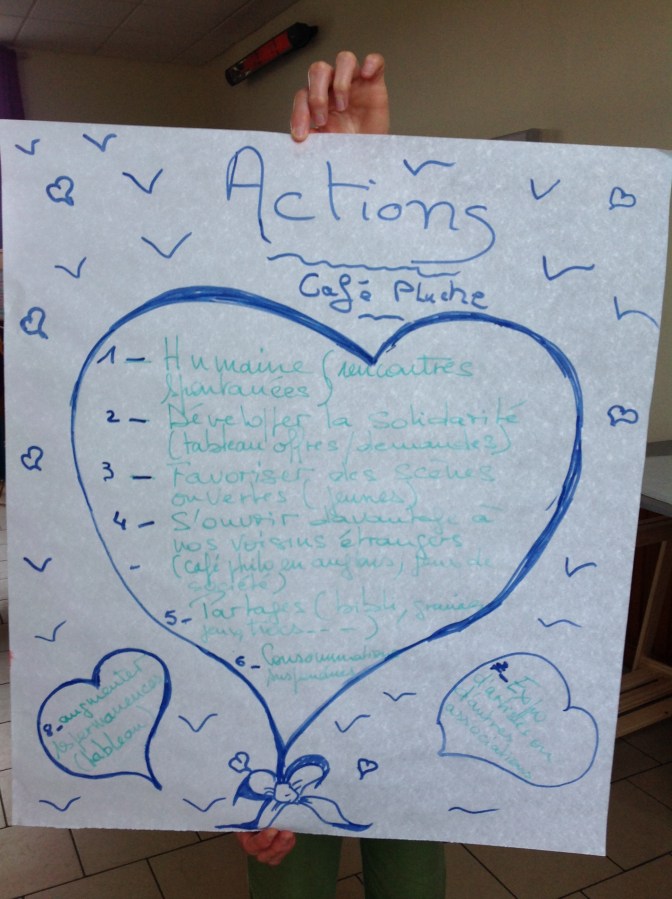 Actions
Café Pluche
1 - Humaine (rencontres
spontanées)
2 - Développer la solidarité
(tableau offres/demandes)
3 - Favoriser des scènes
ouvertes (jeunes)
4 - S'ouvrir davantage à
nos voisins étrangers
- (café philo en anglais, jeux de
société)
5 - Partages (bibli, graines
jeux, trocs - - - -)
6 - Consommations
suspendues
7 - Expo
d'artistes ou
d'autres
associations
8 - augmenter
les permanences
(tableau)